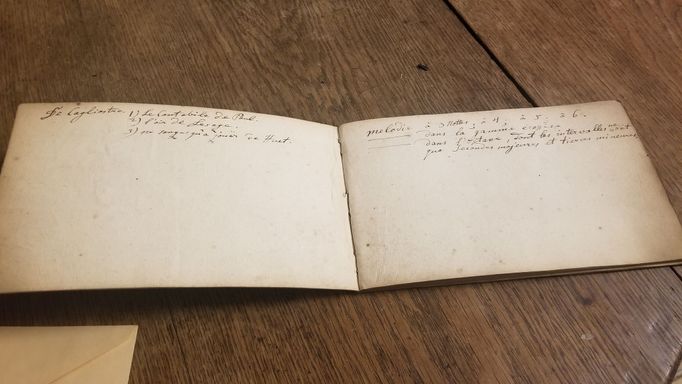 De Cagliostro 1) Le Cantabile de Paul.
2) l'air de Lesage.
3) ne songe qu'à jouer de Huet.
melodie à 3 notes, à 4, à 5, à 6.
dans la gamme
dans l'octave, dont les intervalles ne sont
que secondes majeures et tierces mineures